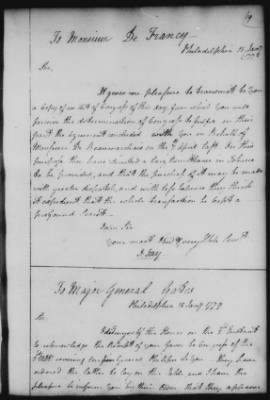 To Monsieur De Francy
Philadelphia 15 Jany
1779
Sir,
It gives me pleasure to transmit to you
a Copy of an Act of Congress of this day from which you will
perceive the determination of Congress to fulfil on their
part the agreement concluded with you on behalf of
Monsieur De Beaumarchais on the last. For this
purpose they have directed a large remittance in Tobacco
to be procured, and that the purchase of it may be made
with greater dispatch, and with less expence they think
it expedient that the whole transaction be kept a
profound Secret.
I am Sir
your most Obed & very Hble Servt
J. Jay
To Major General Gates
Philadelphia 15 Jany 1779
Sir
the Honor on the Instant
to acknowledge the Receipt of your favor to Congress of the
covering one from General Phillips to you. They have
ordered the letter to lay on the Table and I have the
pleasure to inform you by their Order that they approve